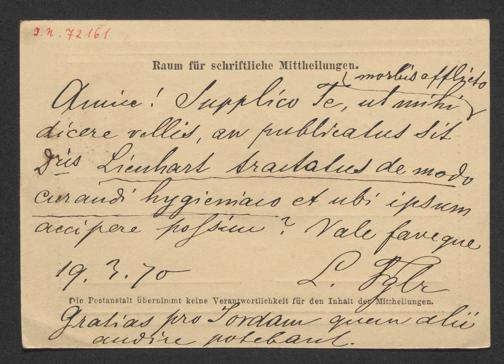 I.N. 72161
Raum für schriftliche Mittheilungen.
(morbis afflicto)
Amice! Supplico Te, ut mihi
dicere vellis, an publicatus sit
Dris Lienhart tractatus de modo
curandi hygieniaco et ubi ipsum
accipere possim? Vale faveque
19. 3. 70 L.
Die Postanstalt übernimmt keine Verantwortlichkeit für den Inhalt der Mittheilungen.
Gratias pro Jordam quem alii
audire potebant.